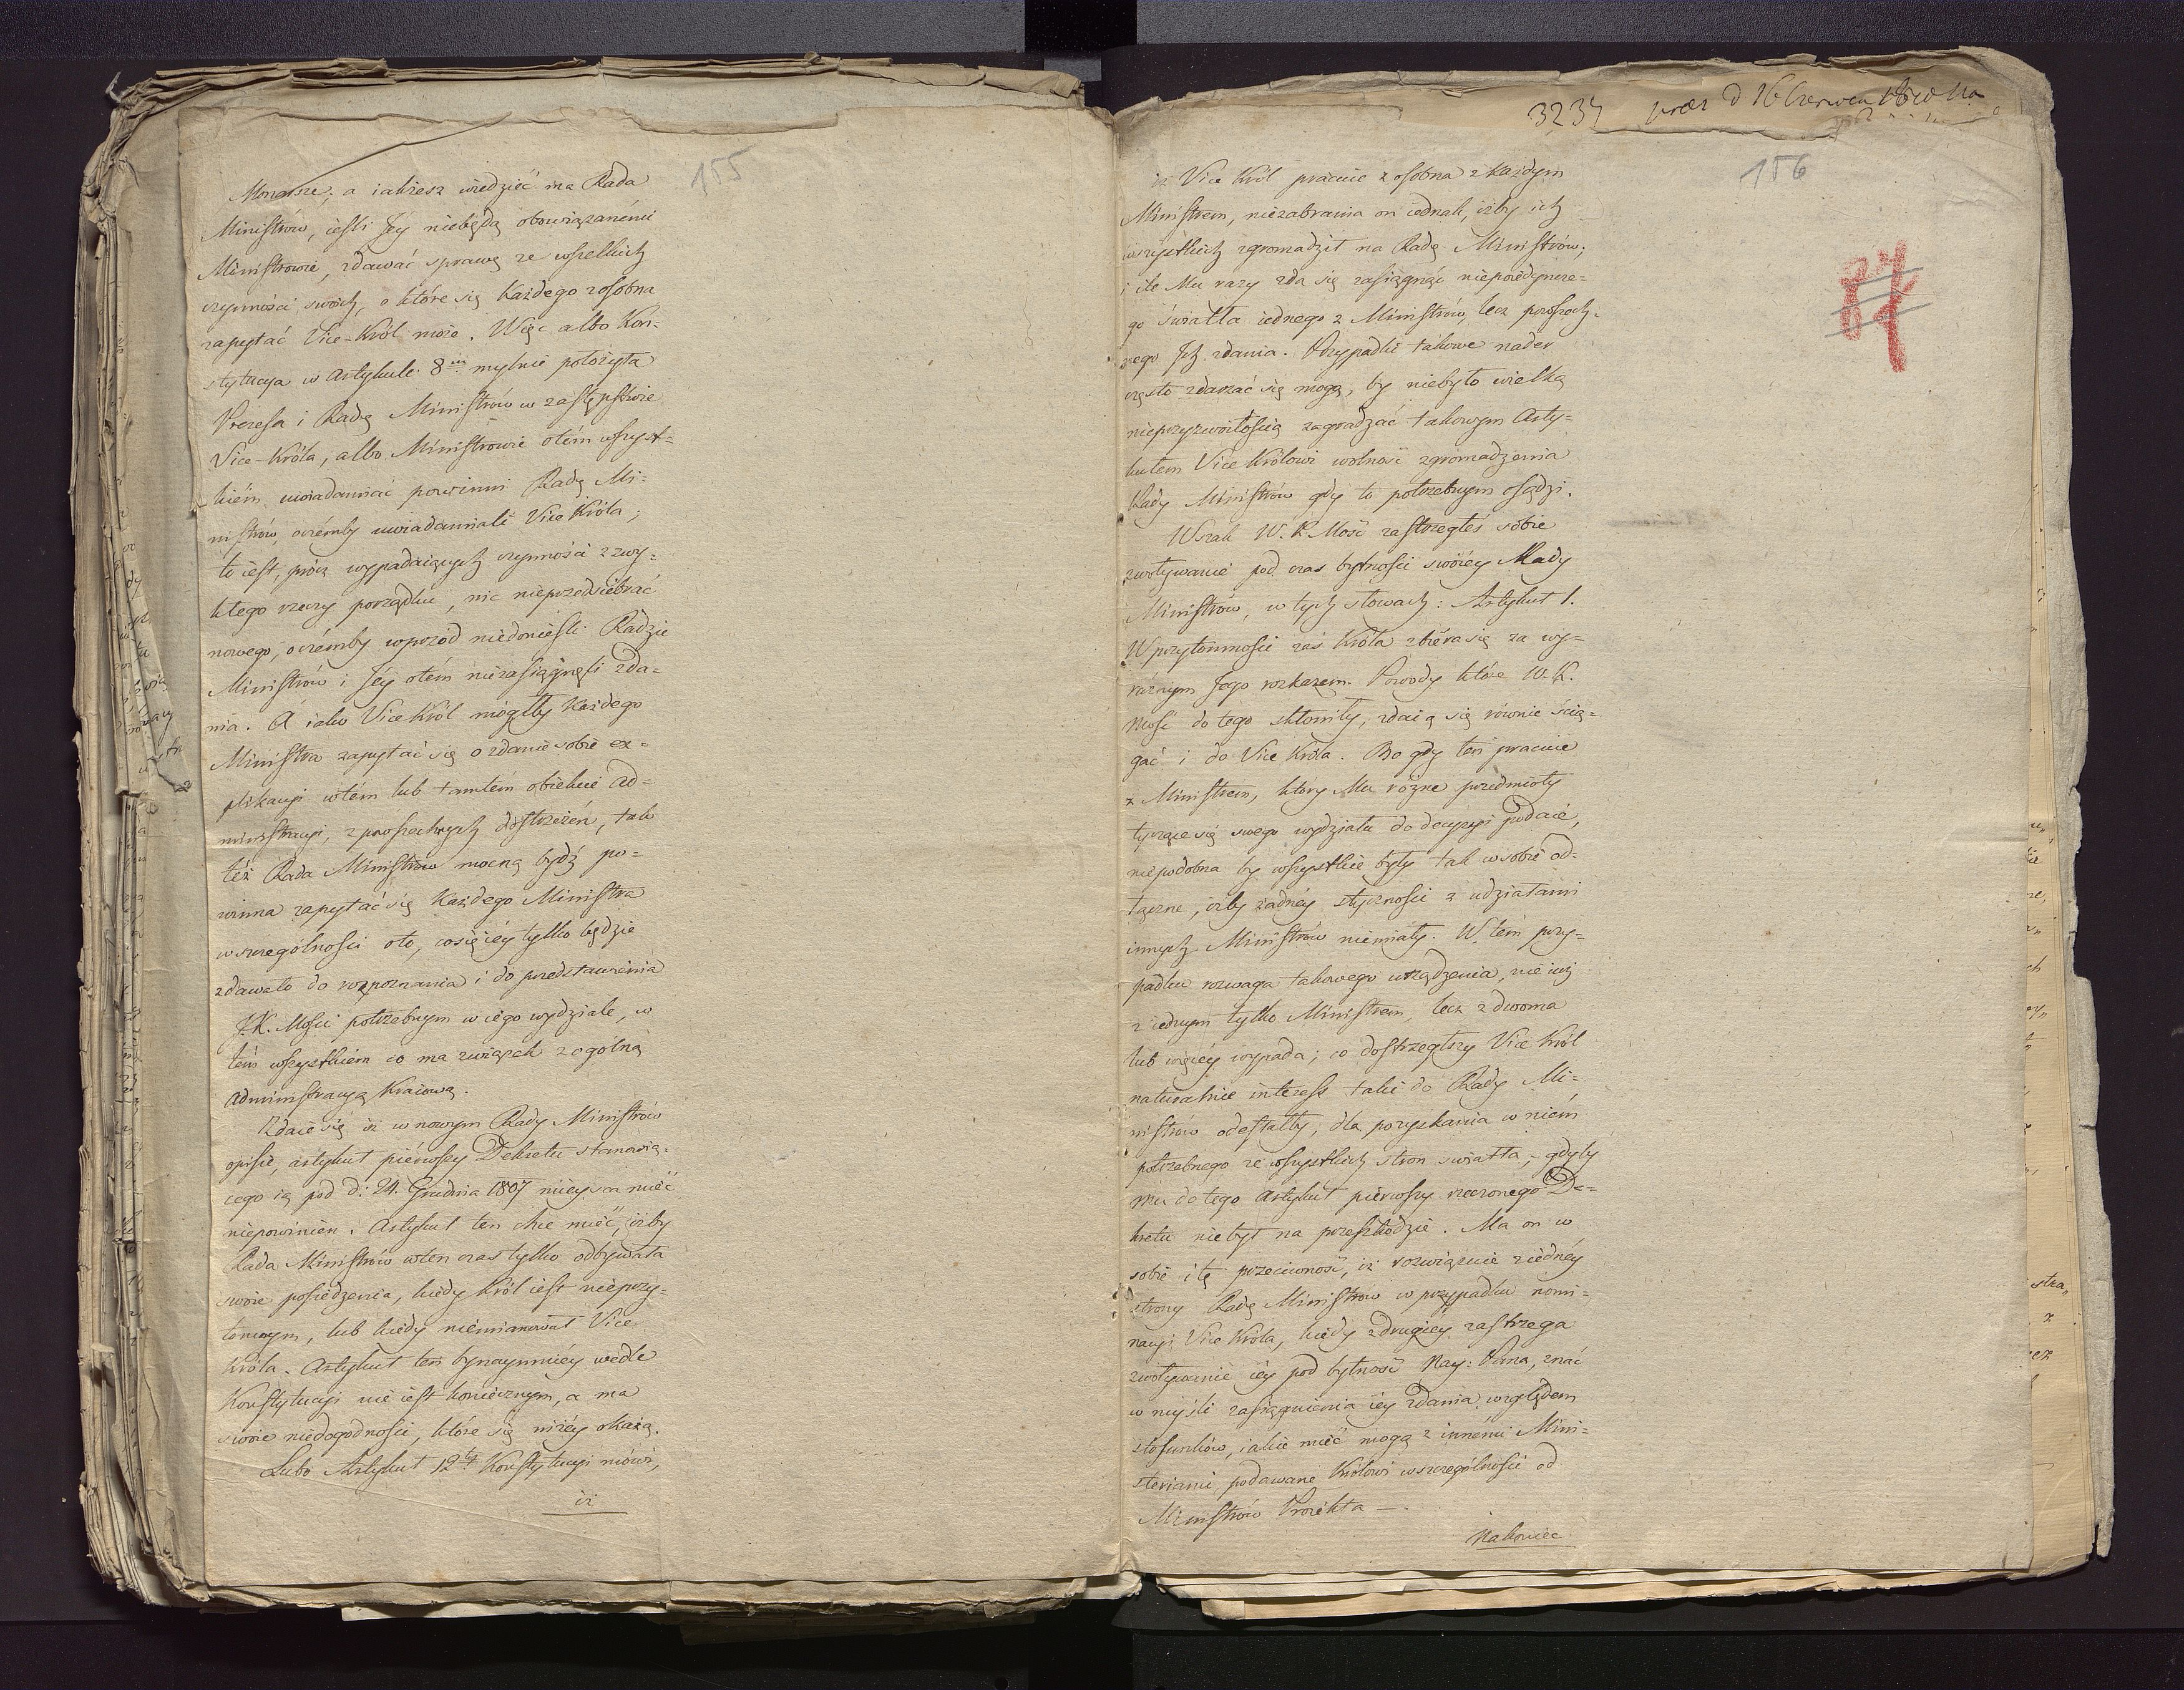 155
Monarsze; a iakżesz wiedzieć ma Rada
Ministrów, iesli Jéy niebędą obowiązanémi
Ministrowie, zdawać sprawę ze wszelkich
czynności swoich, o które się każdego zosobna
zapytać Vice-Król może. Więc albo Kon=
stytucya w Artykule 8ym mylnie położyła
Prezesa i Radę Ministrów w zastępstwie
Vice-Króla, albo Ministrowie otém wszyst=
kiém uwiadamiać powinni Radę Mi=
nistrów, oczémby uwiadamiali Vice Króla;
to iest, prócz wypadaiących czynności z zwy=
kłego rzeczy porządku, nic nieprzedsiebrać
nowego, oczémby wprzód niedonieśli Radzie
Ministrów i Jéy otém niezasiągnęli zda=
nia. A iako Vice Król mógłby każdego
Ministra zapytać się o zdanie sobie ex=
plikacyi wtém lub tamtém obiekcie ad=
ministracyi, z powszechnych dostrzeżeń, tak
też Rada Ministrów mocną bydź po=
winna zapytać się każdego Ministra
wszczególności oto, cosię iéy tylko będzie
zdawało do rozpoznania i do przedstawienia
J.K. Mości potrzebnym w iego wydziale, w
tém wszystkiem co ma związek z ogólną
administracyą Kraiową.
Zdaie się iż w nowym Rady Ministrów
opisie, artykuł piérwszy Dekretu stanowią=
cego ią pod d: 24. Grudnia 1807 mieysca mieć
niepowinien. Artykuł ten chce mieć, iżby
Rada Ministrów wten czas tylko odbywała
swoie posiedzenia, kiedy Król iest nieprzy=
tomnym, lub kiedy niemianował Vice
Króla. Artykuł ten bynaymniéy wedle
Konstytucyi nie iest koniecznym, a ma
swoie niedogodności, które się niżéy okażą.
Lubo Artykuł 12ty Konstytucyi mówi,
iż
3234
156
iż Vice Król pracuie z osobna z każdym
Ministrem, niezabrania on iednak, iżby ich
wszystkich zgromadził na Radę Ministrów;
i ile Mu razy zda się zasiągnąć niepoiedyncze=
go światła iednego z Ministrów, lecz powszech=
nego Jch zdania. Przypadki takowe nader
często zdarzać się mogą, by niebyło wielką
nieprzyzwoitością zagradzać takowym Arty=
kułem Vice Królowi wolność zgromadzenia
Rady Ministrów gdy to potrzebnym osądzi.
Wszak W. K. Mość zastrzegłeś sobie
zwoływanie pod czas bytności swoiey Rady
Ministrów, w tych słowach: Artykuł 1.
W przytomności zaś Króla zbiéra się za wy=
raźnym Jego rozkazem. Powody które W. K.
Mość do tego skłoniły, zdaią się równie ścią=
gać i do Vice Króla. Bo gdy ten pracuie
z Ministrem, który Mu różne przedmioty
tyczące się swego wydziału do decyzyi podaie,
niepodobna by wszystkie były tak wsobie od=
łączne, iżby żadnéy styczności z udziałami
innych Ministrów niemiały. W tém przy=
padku rozwaga takowego urządzenia, nie iuż
z iednym tylko Ministrem, lecz z dwoma
lub więcéy wypada; co dostrzegłszy Vice Król
naturalnie interess taki do Rady Mi=
nistrów odesłałby, dla pozyskania w niém
potrzebnego ze wszystkich stron światła, gdyby
mu do tego Artykuł piérwszy rzeczonego De=
kretu nie był na przeszkodzie. Ma on w
sobie i tę przeciwność, iż rozwiązuie z iednéy
strony Radę Ministrów w przypadku nomi=
nacyi Vice Króla, kiedy z drugiéy zastrzega
zwoływanie iéy pod bytność Nay: Pana, znać
w myśli zasiągnienia iéy zdania względem
stosunków, iakie mieć mogą z innémi Mini=
steriami podawane Królowi wszczególności od
Ministrów Proiekta —.
Nakoniec